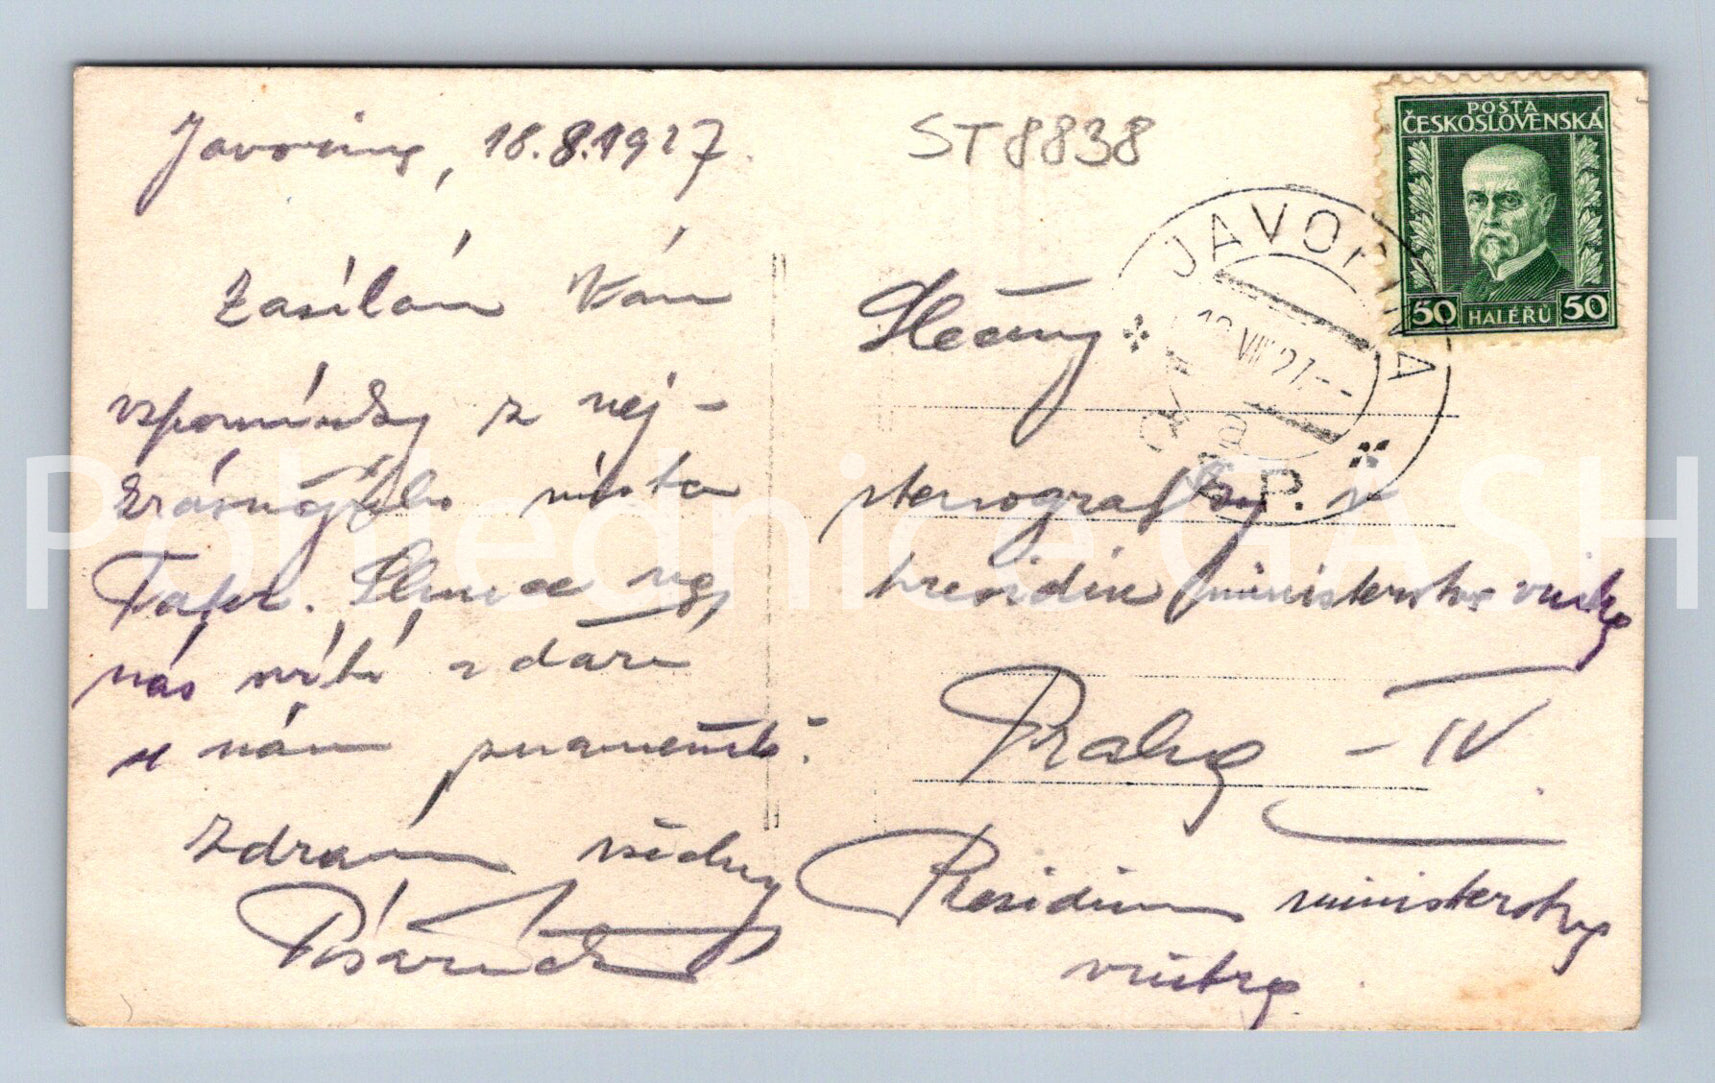 Javorina, 18.8.1927.
ST8838
POŠTA
ČESKOSLOVENSKÁ
50 HALÉŘŮ 50
JAVORINA
VIII 27
Č.S.P.
Zasílám Vám
vzpomínky z nej-
krásnějšího místa
Tater. Slunce na
nás svítí a daří
se nám znamenitě.
Zdraví všichni
Slečny
stenografky v
presidiu ministerstva vnitra
Praha - IV
Presidium ministerstva
vnitra
Pohlednice GASH